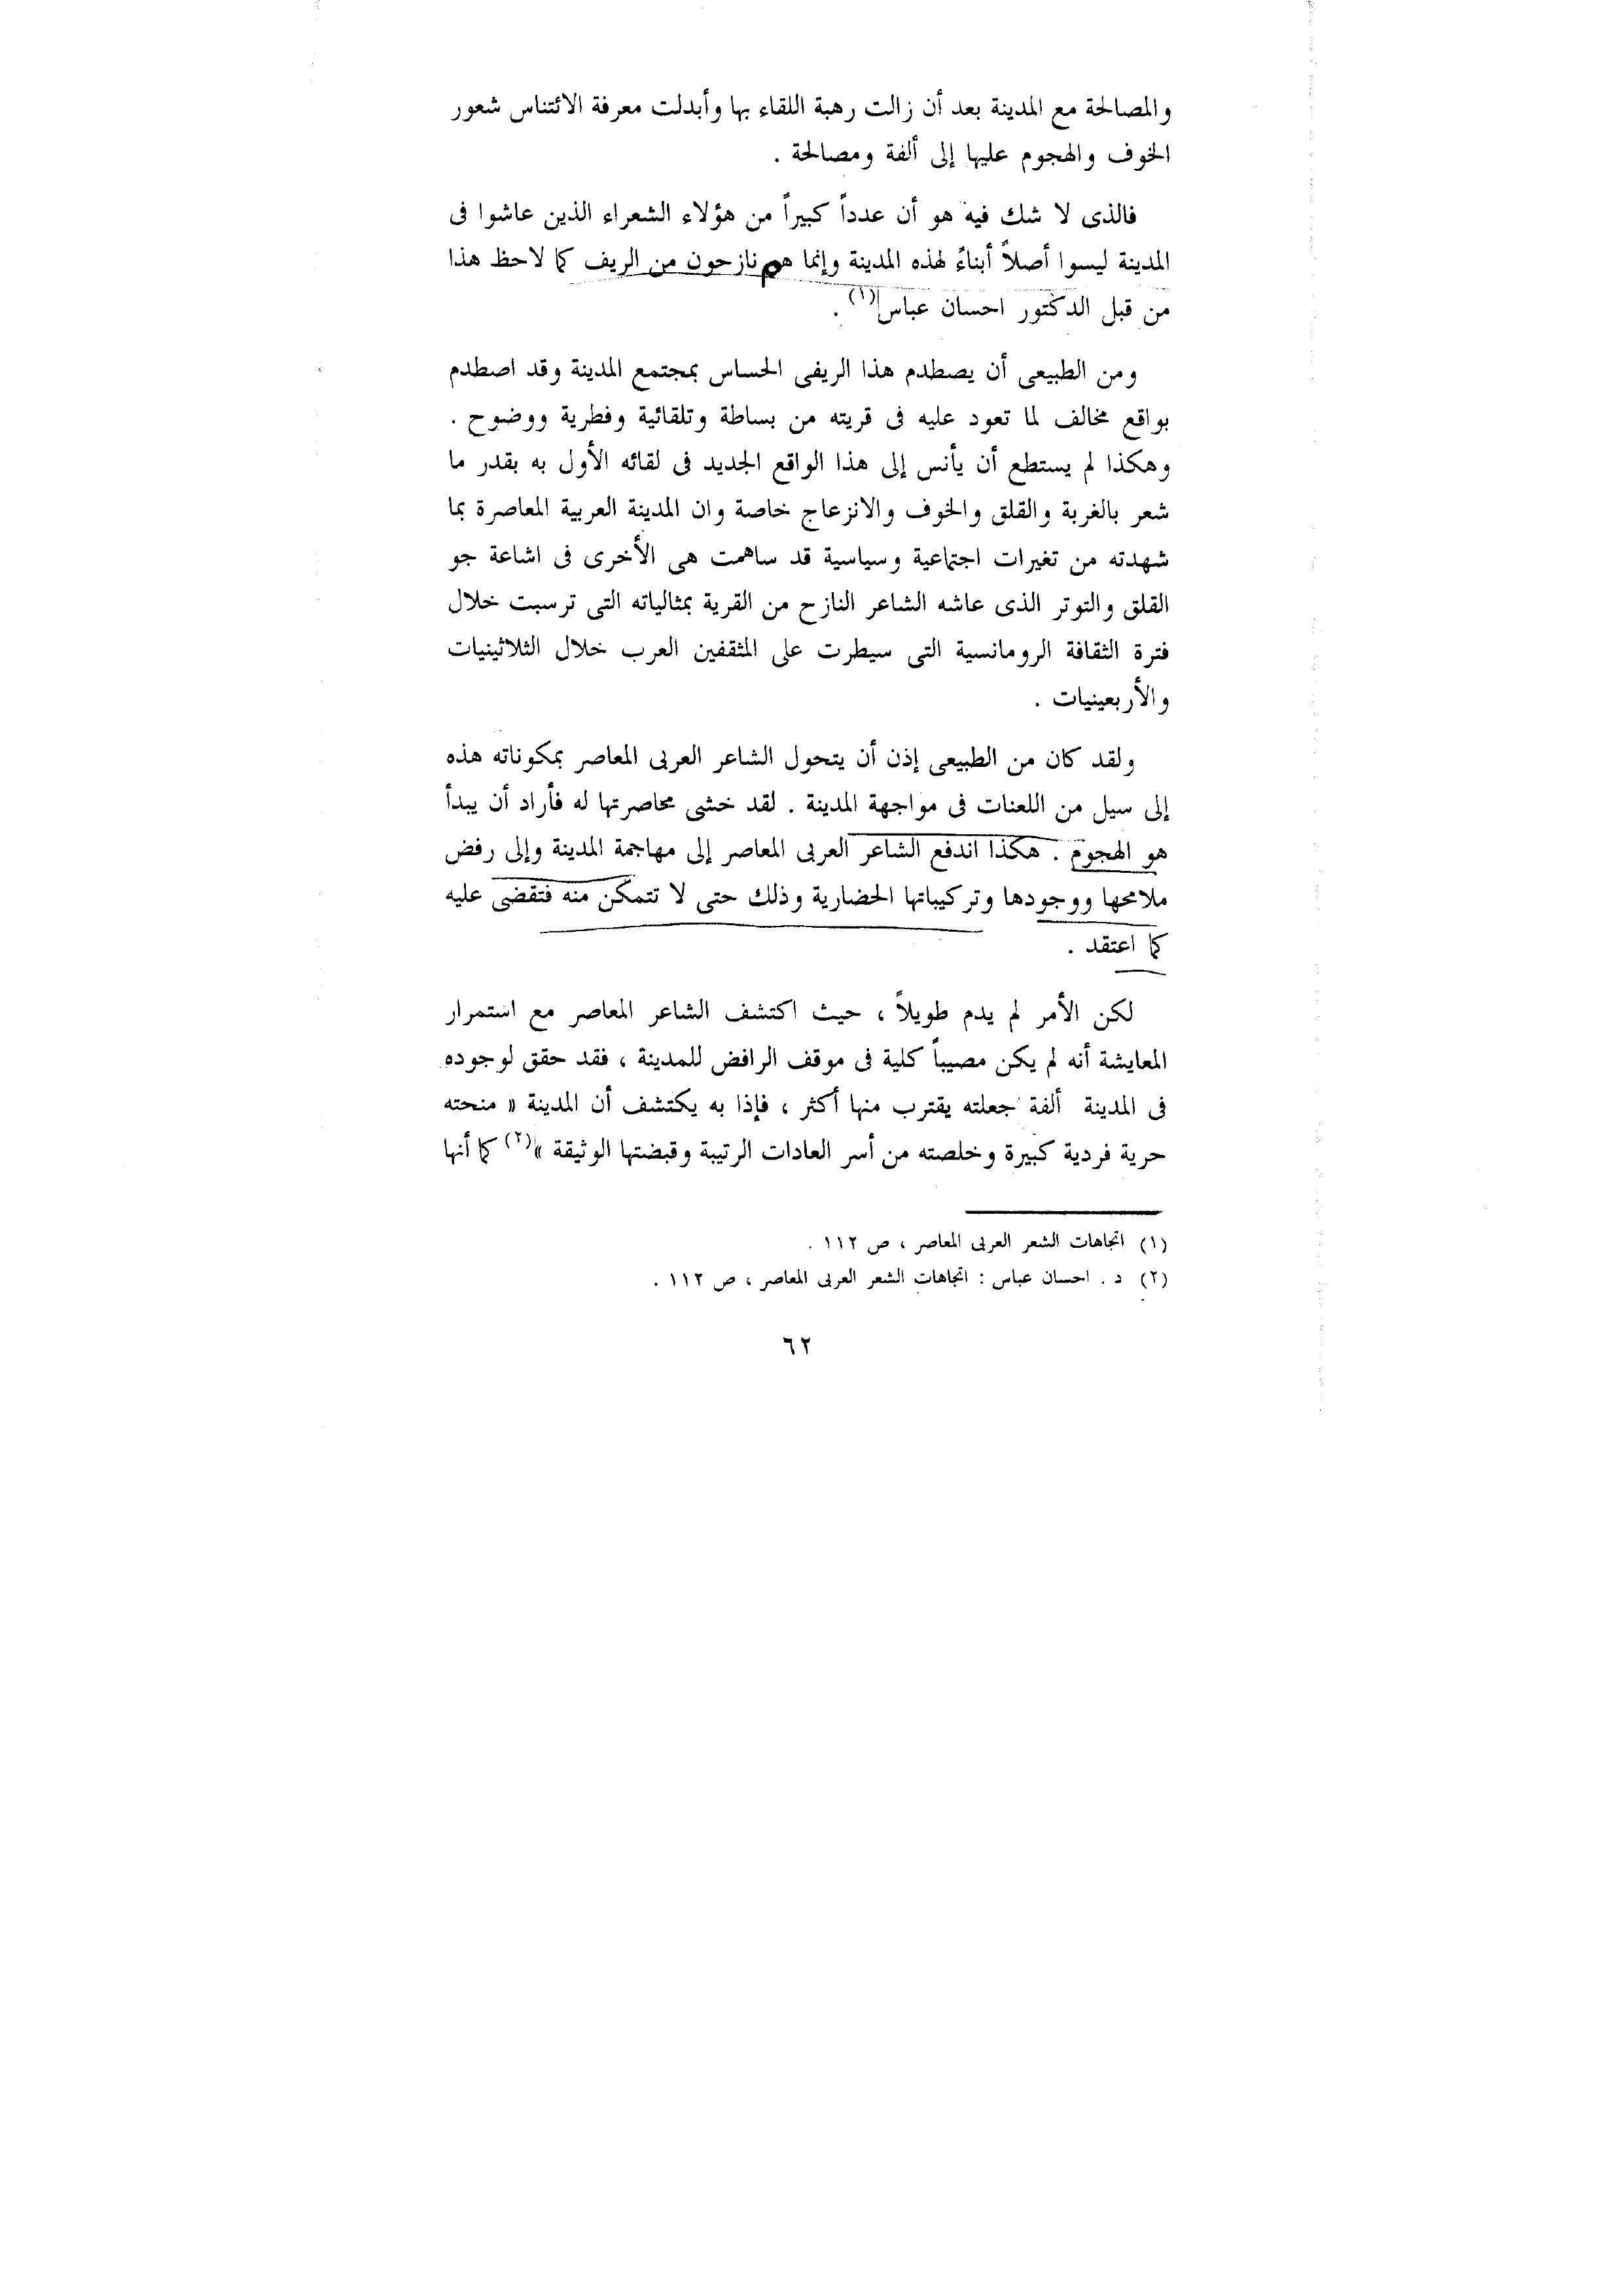 والمصالحة مع المدينة بعد أن زالت رهبة اللقاء بها وأبدلت معرفة الائتناس شعور
الخوف والهجوم عليها إلى ألفة ومصالحة .
فالذى لا شك فيه هو أن عدداً كبيراً من هؤلاء الشعراء الذين عاشوا فى
المدينة ليسوا أصلاً أبناءً لهذه المدينة وإنما هم نازحون من الريف كما لاحظ هذا
من قبل الدكتور احسان عباس(١) .
ومن الطبيعى أن يصطدم هذا الريفى الحساس بمجتمع المدينة وقد اصطدم
بواقع مخالف لما تعود عليه فى قريته من بساطة وتلقائية وفطرية ووضوح .
وهكذا لم يستطع أن يأنس إلى هذا الواقع الجديد فى لقائه الأول به بقدر ما
شعر بالغربة والقلق والخوف والانزعاج خاصة وان المدينة العربية المعاصرة بما
شهدته من تغيرات اجتماعية وسياسية قد ساهمت هى الأخرى فى اشاعة جو
القلق والتوتر الذى عاشه الشاعر النازح من القرية بمثالياته التى ترسبت خلال
فترة الثقافة الرومانسية التى سيطرت على المثقفين العرب خلال الثلاثينيات
والأربعينيات .
ولقد كان من الطبيعى إذن أن يتحول الشاعر العربى المعاصر بمكوناته هذه
إلى سيل من اللعنات فى مواجهة المدينة . لقد خشى محاصرتها له فأراد أن يبدأ
هو الهجوم . هكذا اندفع الشاعر العربى المعاصر إلى مهاجمة المدينة وإلى رفض
ملامحها ووجودها وتركيباتها الحضارية وذلك حتى لا تتمكن منه فتقضى عليه
كما اعتقد .
لكن الأمر لم يدم طويلاً ، حيث اكتشف الشاعر المعاصر مع استمرار
المعايشة أنه لم يكن مصيباً كلية فى موقف الرافض للمدينة ، فقد حقق لوجوده
فى المدينة ألفة جعلته يقترب منها أكثر ، فإذا به يكتشف أن المدينة « منحته
حرية فردية كبيرة وخلصته من أسر العادات الرتيبة وقبضتها الوثيقة »(٢) كما أنها
(١) اتجاهات الشعر العربى المعاصر ، ص ١١٢ .
(٢) د . احسان عباس : اتجاهات الشعر العربى المعاصر ، ص ١١٢ .
٦٢